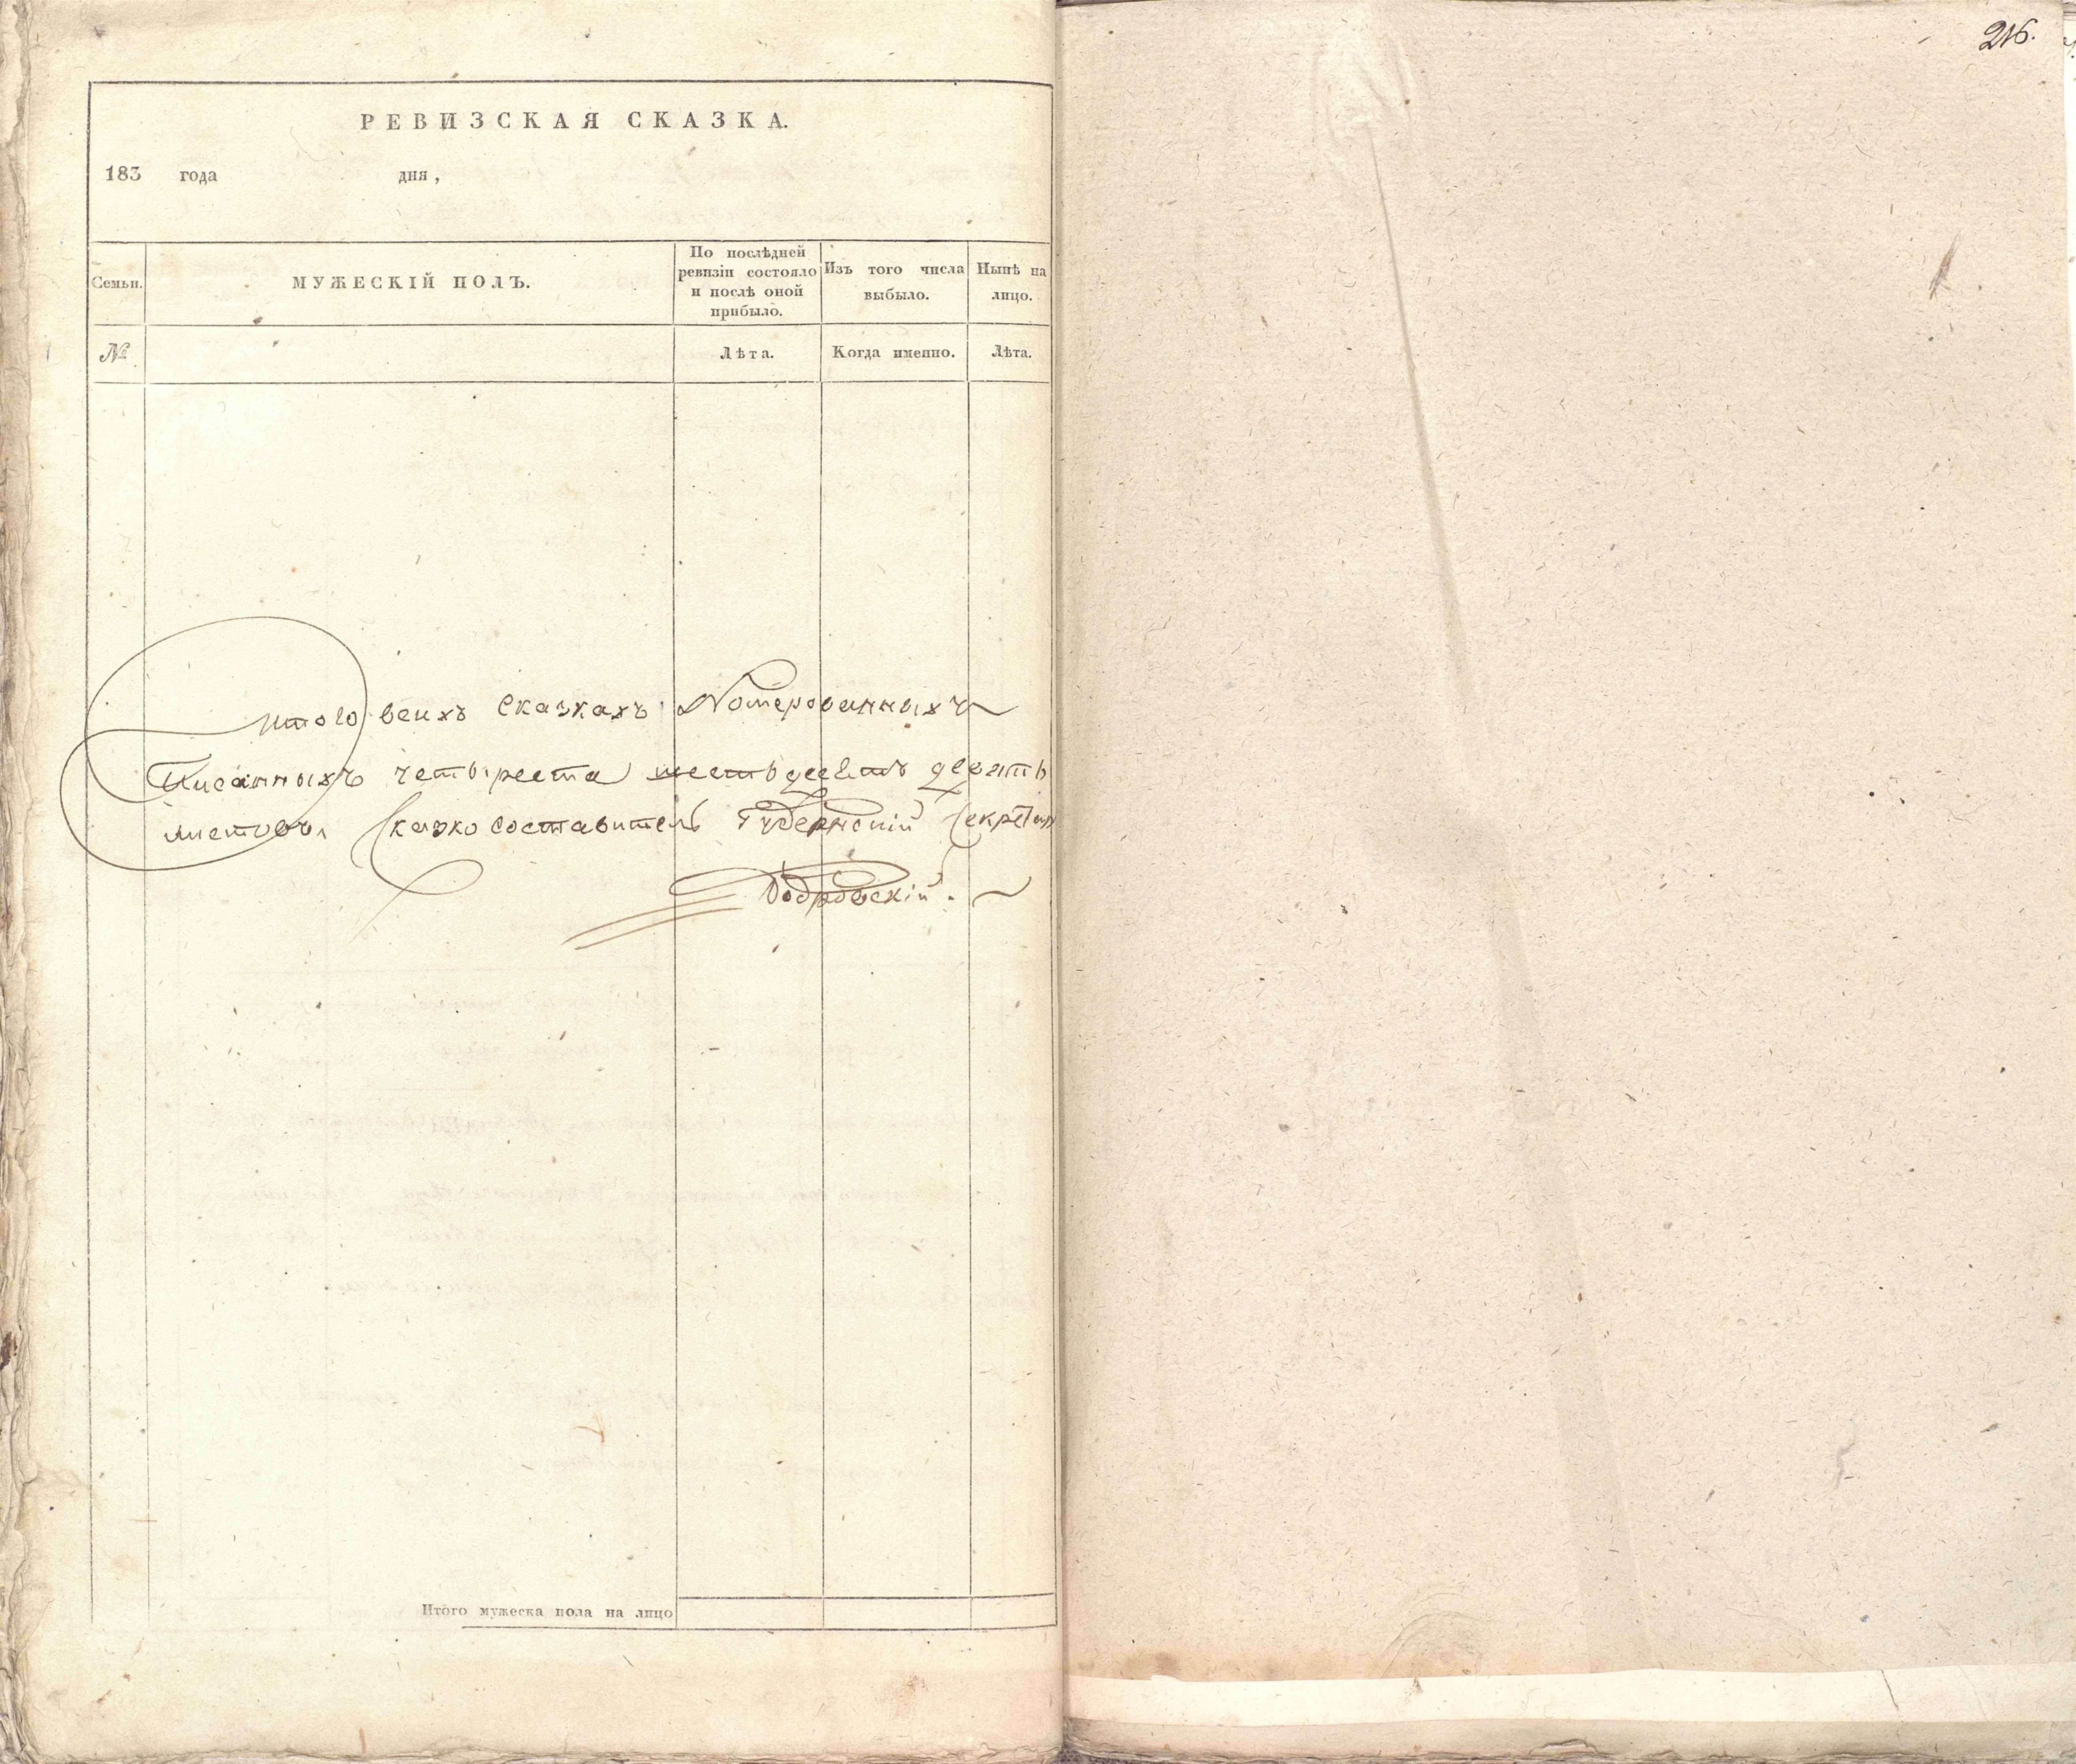 216.
РЕВИЗСКАЯ СКАЗКА.
183 года дня,
Семьи.
МУЖЕСКІЙ ПОЛЪ.
По послѣдней
ревизіи состояло
и послѣ оной
прибыло.
Изъ того числа
выбыло.
Нынѣ на
лицо.
№
Лѣта.
Когда именно.
Лѣта.
итого всихъ сказкахъ Номерованныхъ
Писанныхъ четыреста шестьдесятъ девять
листовъ, Сказко составитель Губернскій Секретарь
Итого мужеска пола на лицо